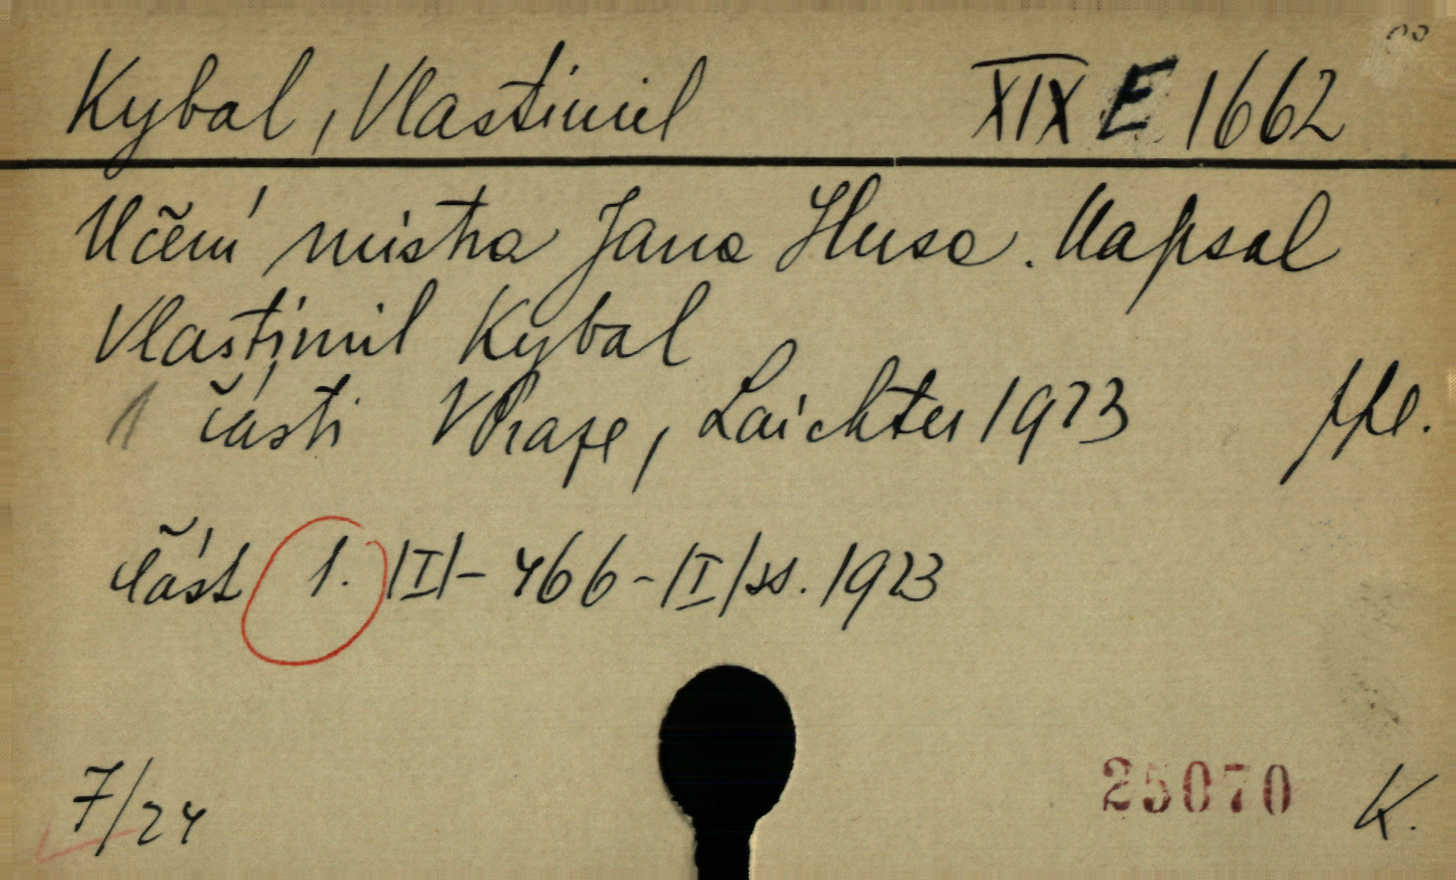 Kybal, Vlastimil XIX E 1662
Učení mistra Jana Husa. Napsal
Vlastimil Kybal
1 části V Praze, Laichter 1923
část 1. /I/- 466 - /I/ ss. 1923
7/24 25070 K.